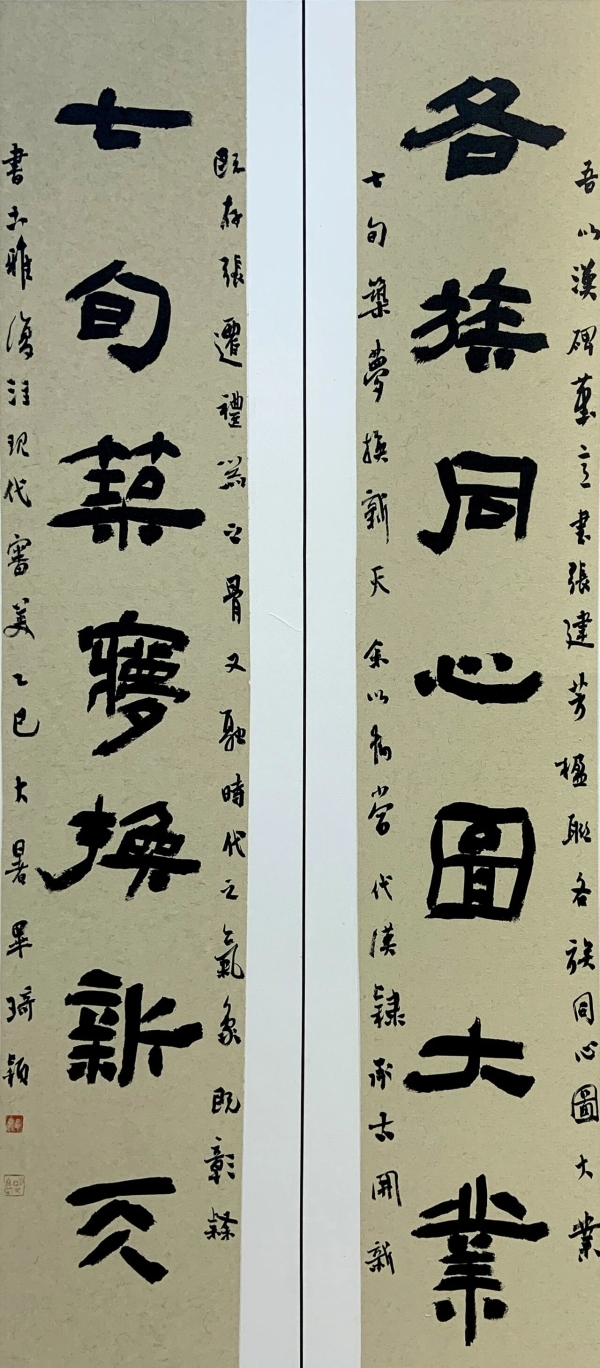 吾以漢碑筆意書張建芳楹聯各族同心圖大業
各族同心圖大業
七旬築夢換新天余以為當代漢隸承古開新
既存張遷禮器之骨又融時代之氣象既彰隸
七旬築夢換新天
書古雅復注現代審美乙巳大暑畢琦穎